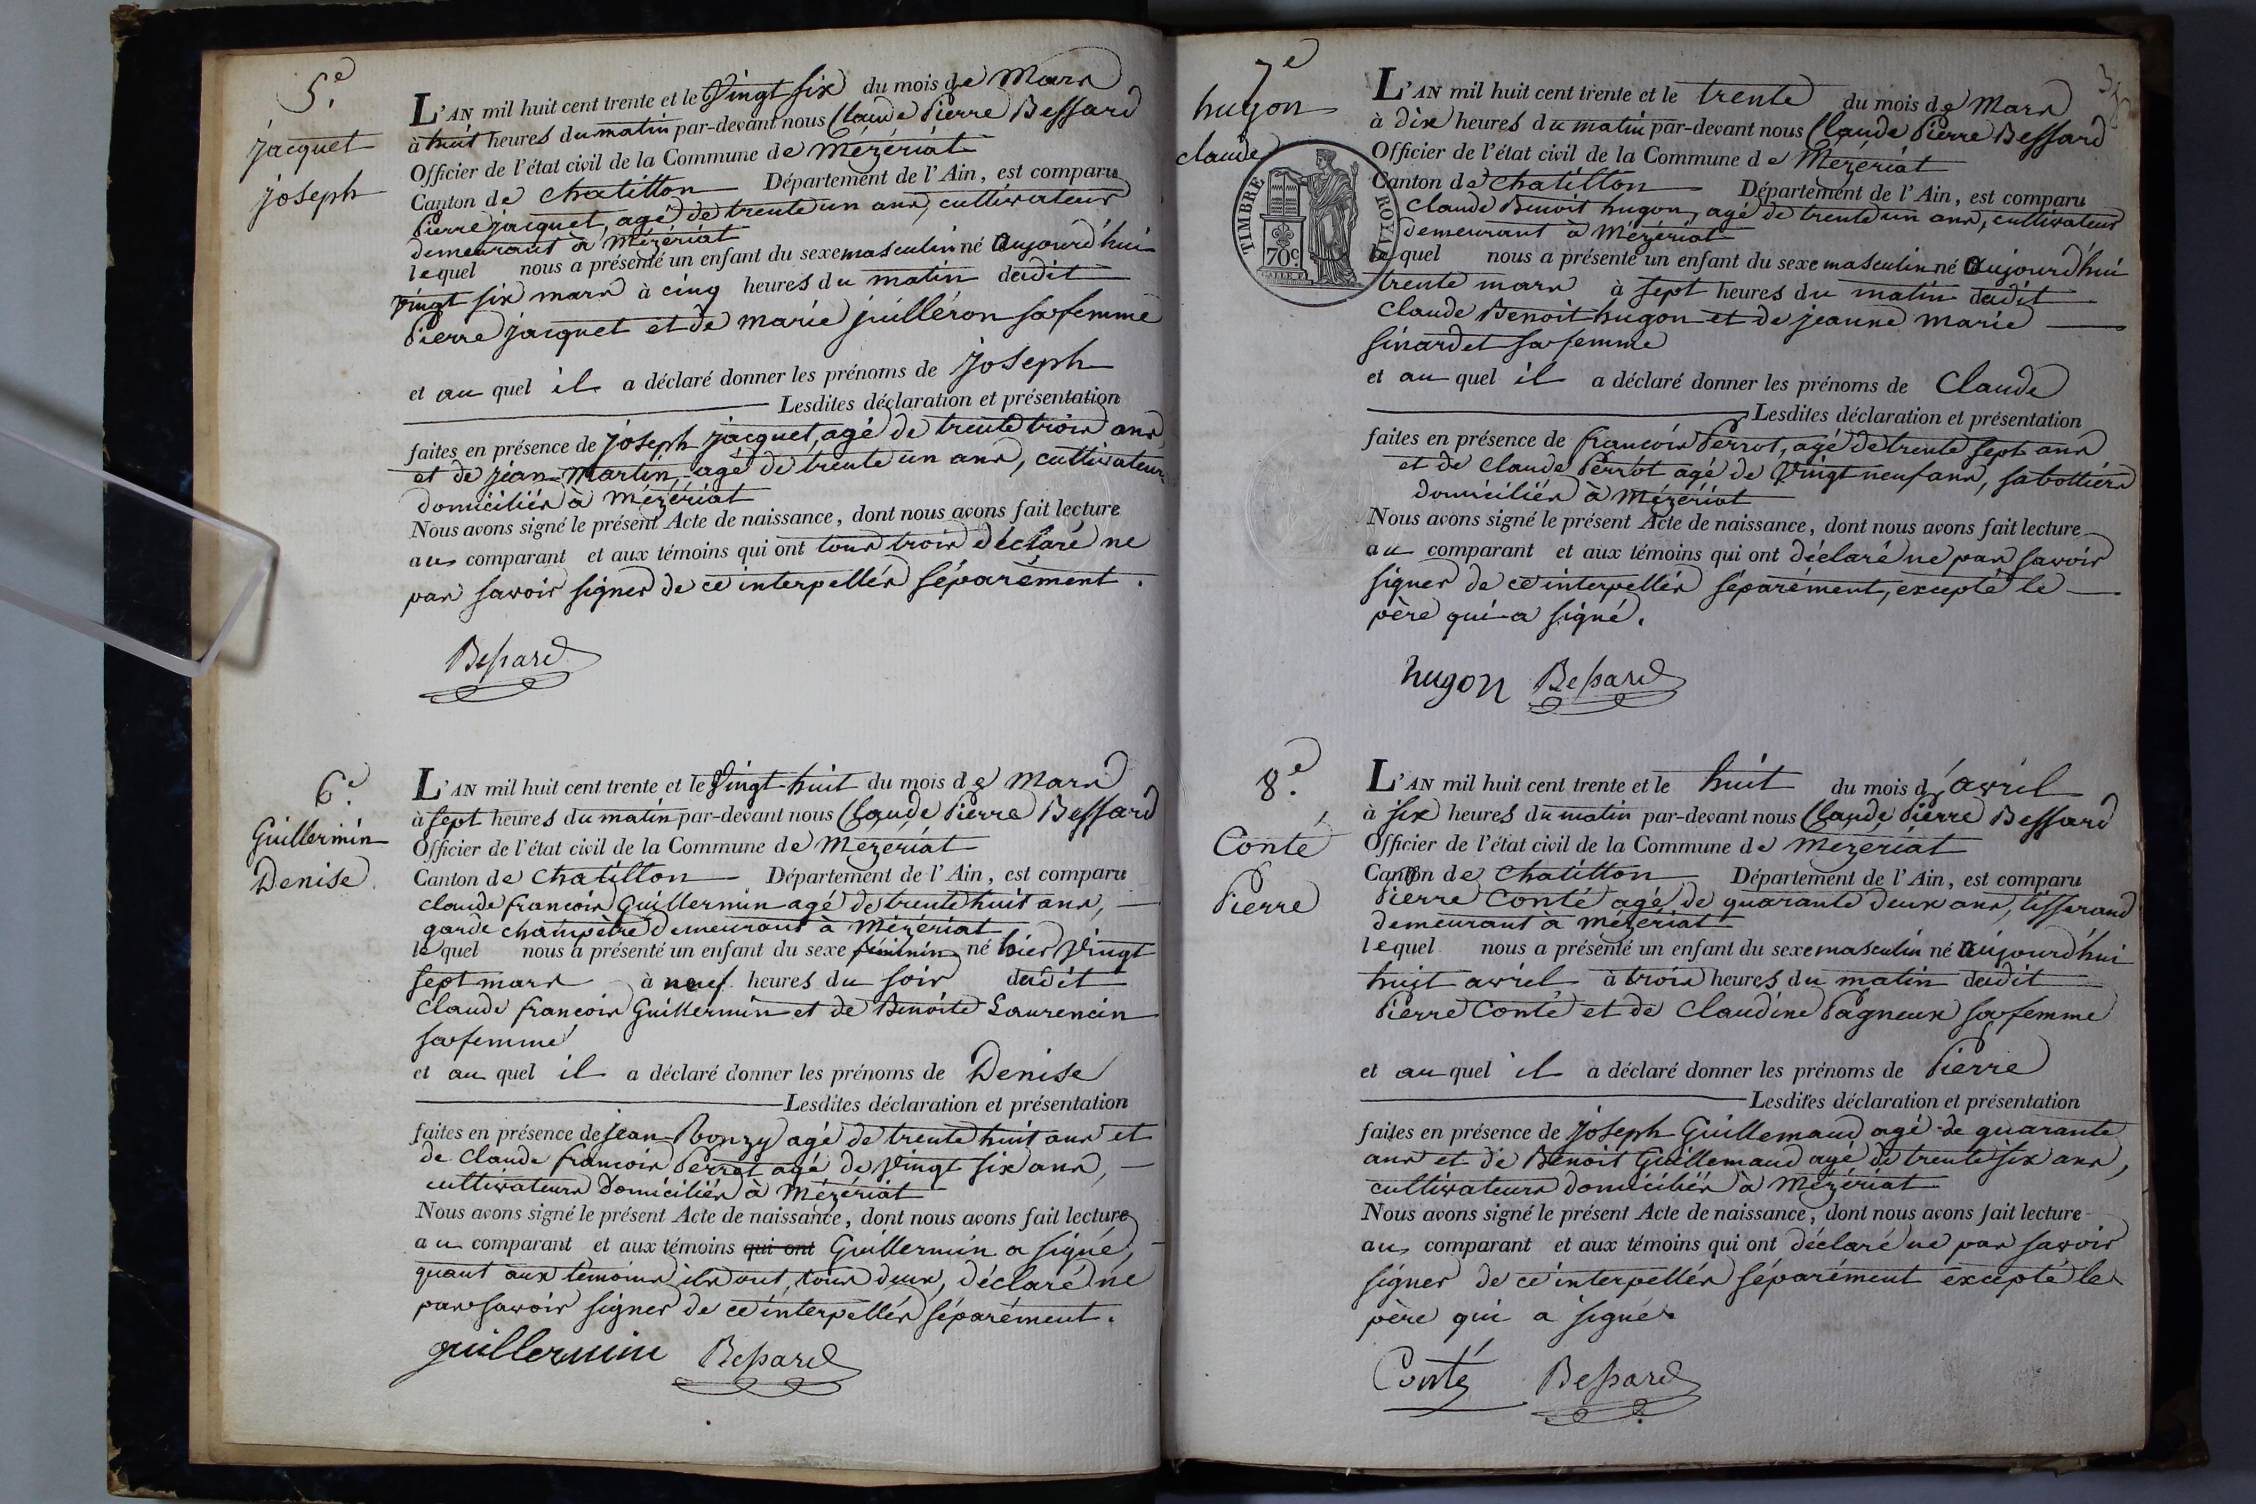 5e.
jacquet
joseph
L'AN mil huit cent trente et le Vingt six du mois de Mars
à huit heures du matin par-devant nous Claude Pierre Bessard
Officier de l'état civil de la Commune de Mézériat
Canton de Chatillon Département de l'Ain, est comparu
Pierre jacquet, agé de trente un ans, cultivateur
demeurant à Mézériat
lequel nous a présenté un enfant du sexe masculin né aujourd'hui
vingt six mars à cinq heures du matin dudit
Pierre jacquet et de marie juilléron sa femme
et au quel il a déclaré donner les prénoms de joseph
Lesdites déclaration et présentation
faites en présence de joseph jacquet, agé de trente trois ans
et de jean Martin, agé de trente un ans, cultivateurs
domiciliés à Mézériat
Nous avons signé le présent Acte de naissance, dont nous avons fait lecture
au comparant et aux témoins qui ont tous trois déclaré ne
pas savoir signer de ce interpellés séparément.
Bessard
6e.
Guillermin
Denise
L'AN mil huit cent trente et le Vingt huit du mois de Mars
à sept heures du matin par-devant nous Claude Pierre Bessard
Officier de l'état civil de la Commune de Mézériat
Canton de Chatillon Département de l'Ain, est comparu
claude francois Guillermin agé de trente huit ans,
garde champètre demeurant à Mézériat
lequel nous a présenté un enfant du sexe féminin né hier Vingt
sept mars à neuf heures du soir dudit
Claude francois Guillermin et de Benoite Laurencin
sa femme
et au quel il a déclaré donner les prénoms de Denise
Lesdites déclaration et présentation
faites en présence de jean Bonzy agé de trente huit ans et
de Claude francois Perret agé de Vingt six ans,
cultivateurs domiciliés à Mézériat
Nous avons signé le présent Acte de naissance, dont nous avons fait lecture
au comparant et aux témoins qui ont Guillermin a signé,
quant aux témoins ils ont, tous deux, déclaré ne
pas savoir signer de ce interpellés séparément.
guillermin Bessard
7e
hugon
claude
TIMBRE ROYAL
70c.
L'AN mil huit cent trente et le trente du mois de Mars
à dix heures du matin par-devant nous Claude Pierre Bessard
Officier de l'état civil de la Commune de Mézériat
Canton de Chatillon Département de l'Ain, est comparu
Claude Benoit hugon, agé de trente un ans, cultivateur
demeurant à Mézériat
lequel nous a présenté un enfant du sexe masculin né aujourd'hui
trente mars à sept heures du matin dudit
Claude Benoit hugon et de jeanne marie
sinardet sa femme
et au quel il a déclaré donner les prénoms de Claude
Lesdites déclaration et présentation
faites en présence de francois Perrot, agé de trente sept ans
et de Claude Perrot, agé de Vingt neuf ans, sabottiers
domiciliés à Mézériat
Nous avons signé le présent Acte de naissance, dont nous avons fait lecture
au comparant et aux témoins qui ont déclaré ne pas savoir
signer de ce interpellés séparément, excepté le
père qui a signé.
hugon Bessard
8e.
Conté
Pierre
L'AN mil huit cent trente et le huit du mois d'avril
à six heures du matin par-devant nous Claude Pierre Bessard
Officier de l'état civil de la Commune de Mézériat
Canton de Chatillon Département de l'Ain, est comparu
Pierre Conté agé de quarante deux ans, tisserand
demeurant à Mézériat
lequel nous a présenté un enfant du sexe masculin né aujourd'hui
huit avril à trois heures du matin dudit
Pierre Conté et de Claudine Pagneux sa femme
et au quel il a déclaré donner les prénoms de Pierre
Lesdites déclaration et présentation
faites en présence de joseph Guillemaud agé de quarante
ans et de Benoit Guillemaud agé de trente six ans,
cultivateurs domiciliés à Mézériat
Nous avons signé le présent Acte de naissance, dont nous avons fait lecture
au comparant et aux témoins qui ont déclaré ne pas savoir
signer de ce interpellés séparément excepté le
père qui a signé.
Conté Bessard